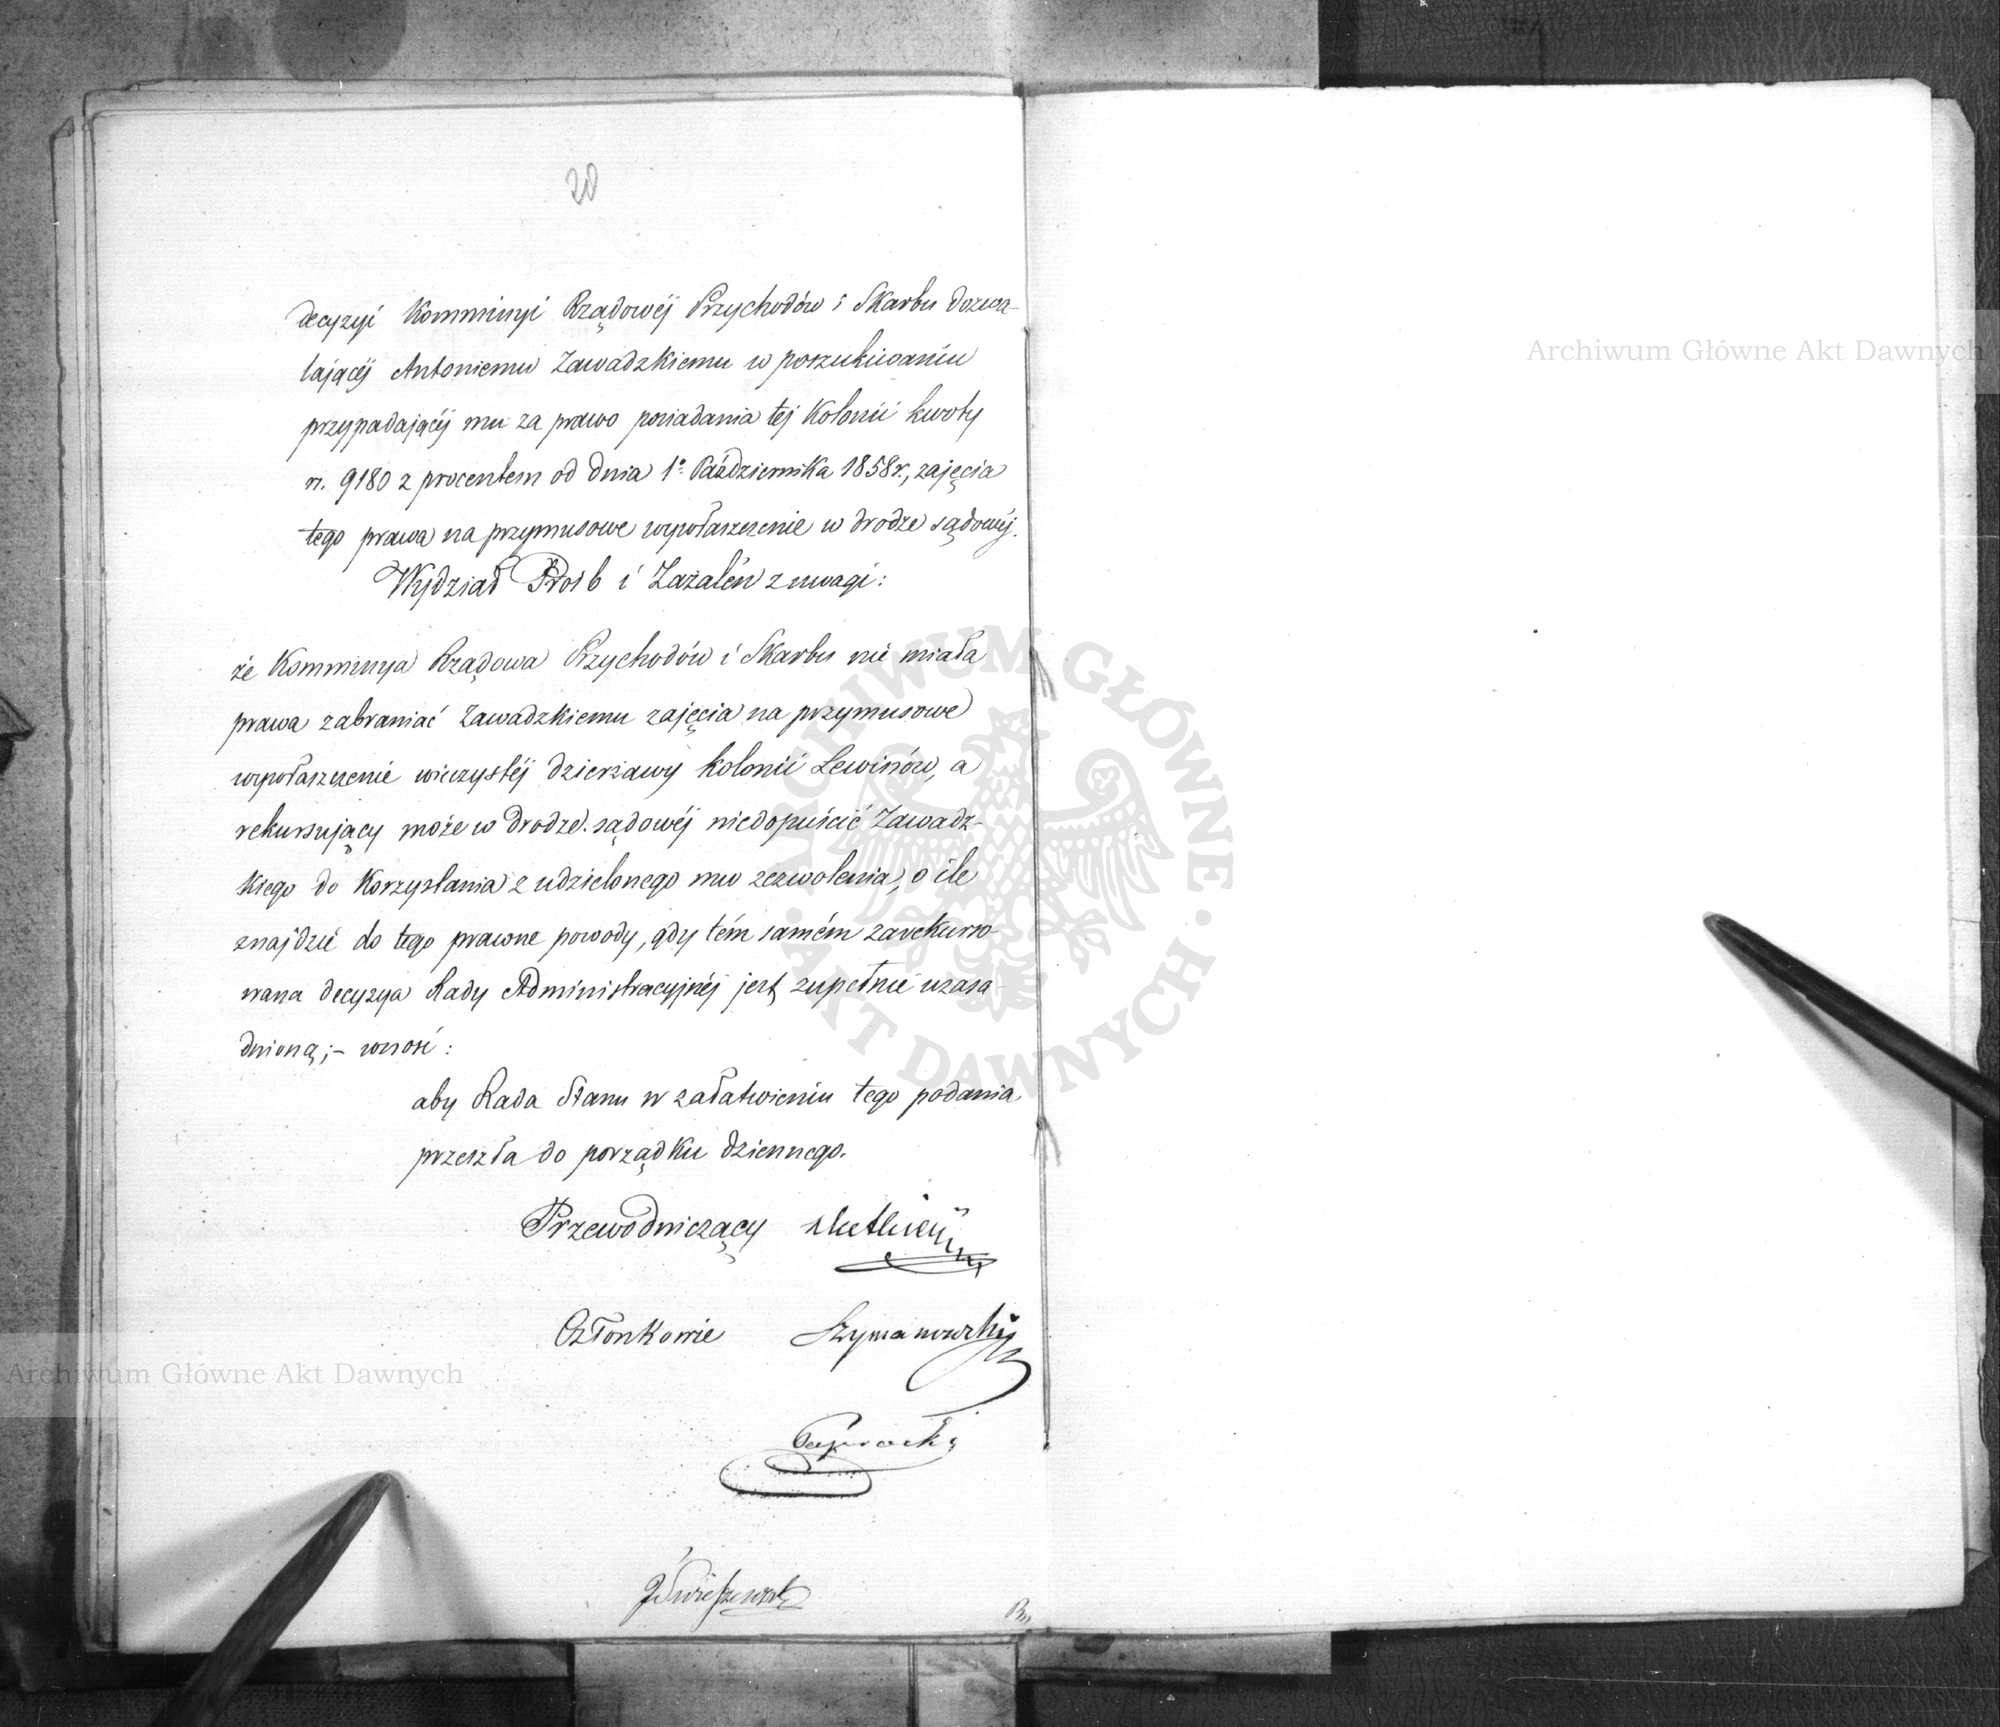 20
decyzyi Kommissyi Rządowéj Przychodów i Skarbu dozwa-
lającéj Antoniemu Zawadzkiemu w poszukiwaniu
przypadającéj mu za prawo posiadania tej Kolonii kwoty
rs. 9180 z procentem od dnia 1º Października 1858 r., zajęcia
tego prawa na przymusowe wywłaszczenie w drodze sądowéj.
Wydział Próśb i Zażaleń z uwagi:
że Kommissya Rządowa Przychodów i Skarbu nie miała
prawa zabraniać Zawadzkiemu zajęcia na przymusowe
wywłaszczenie wieczystéj dzierżawy kolonii Lewinów, a
rekursujący może w drodze sądowéj niedopuścić Zawadz-
kiego do Korzystania z udzielonego mu zezwolenia, o ile
znajdzie do tego prawne powody, gdy tém samém zarekurso-
wana decyzya Rady Administracyjnéj jest zupełnie uzasa-
dnioną;- wnosi:
aby Rada Stanu w załatwieniu tego podania
przeszła do porządku dziennego.
Przewodniczący
Członkowie Szymanowski
Paprocki
Archiwum Główne Akt Dawnych
Archiwum Główne Akt Dawnych
ARCHIWUM GŁÓWNE AKT DAWNYCH